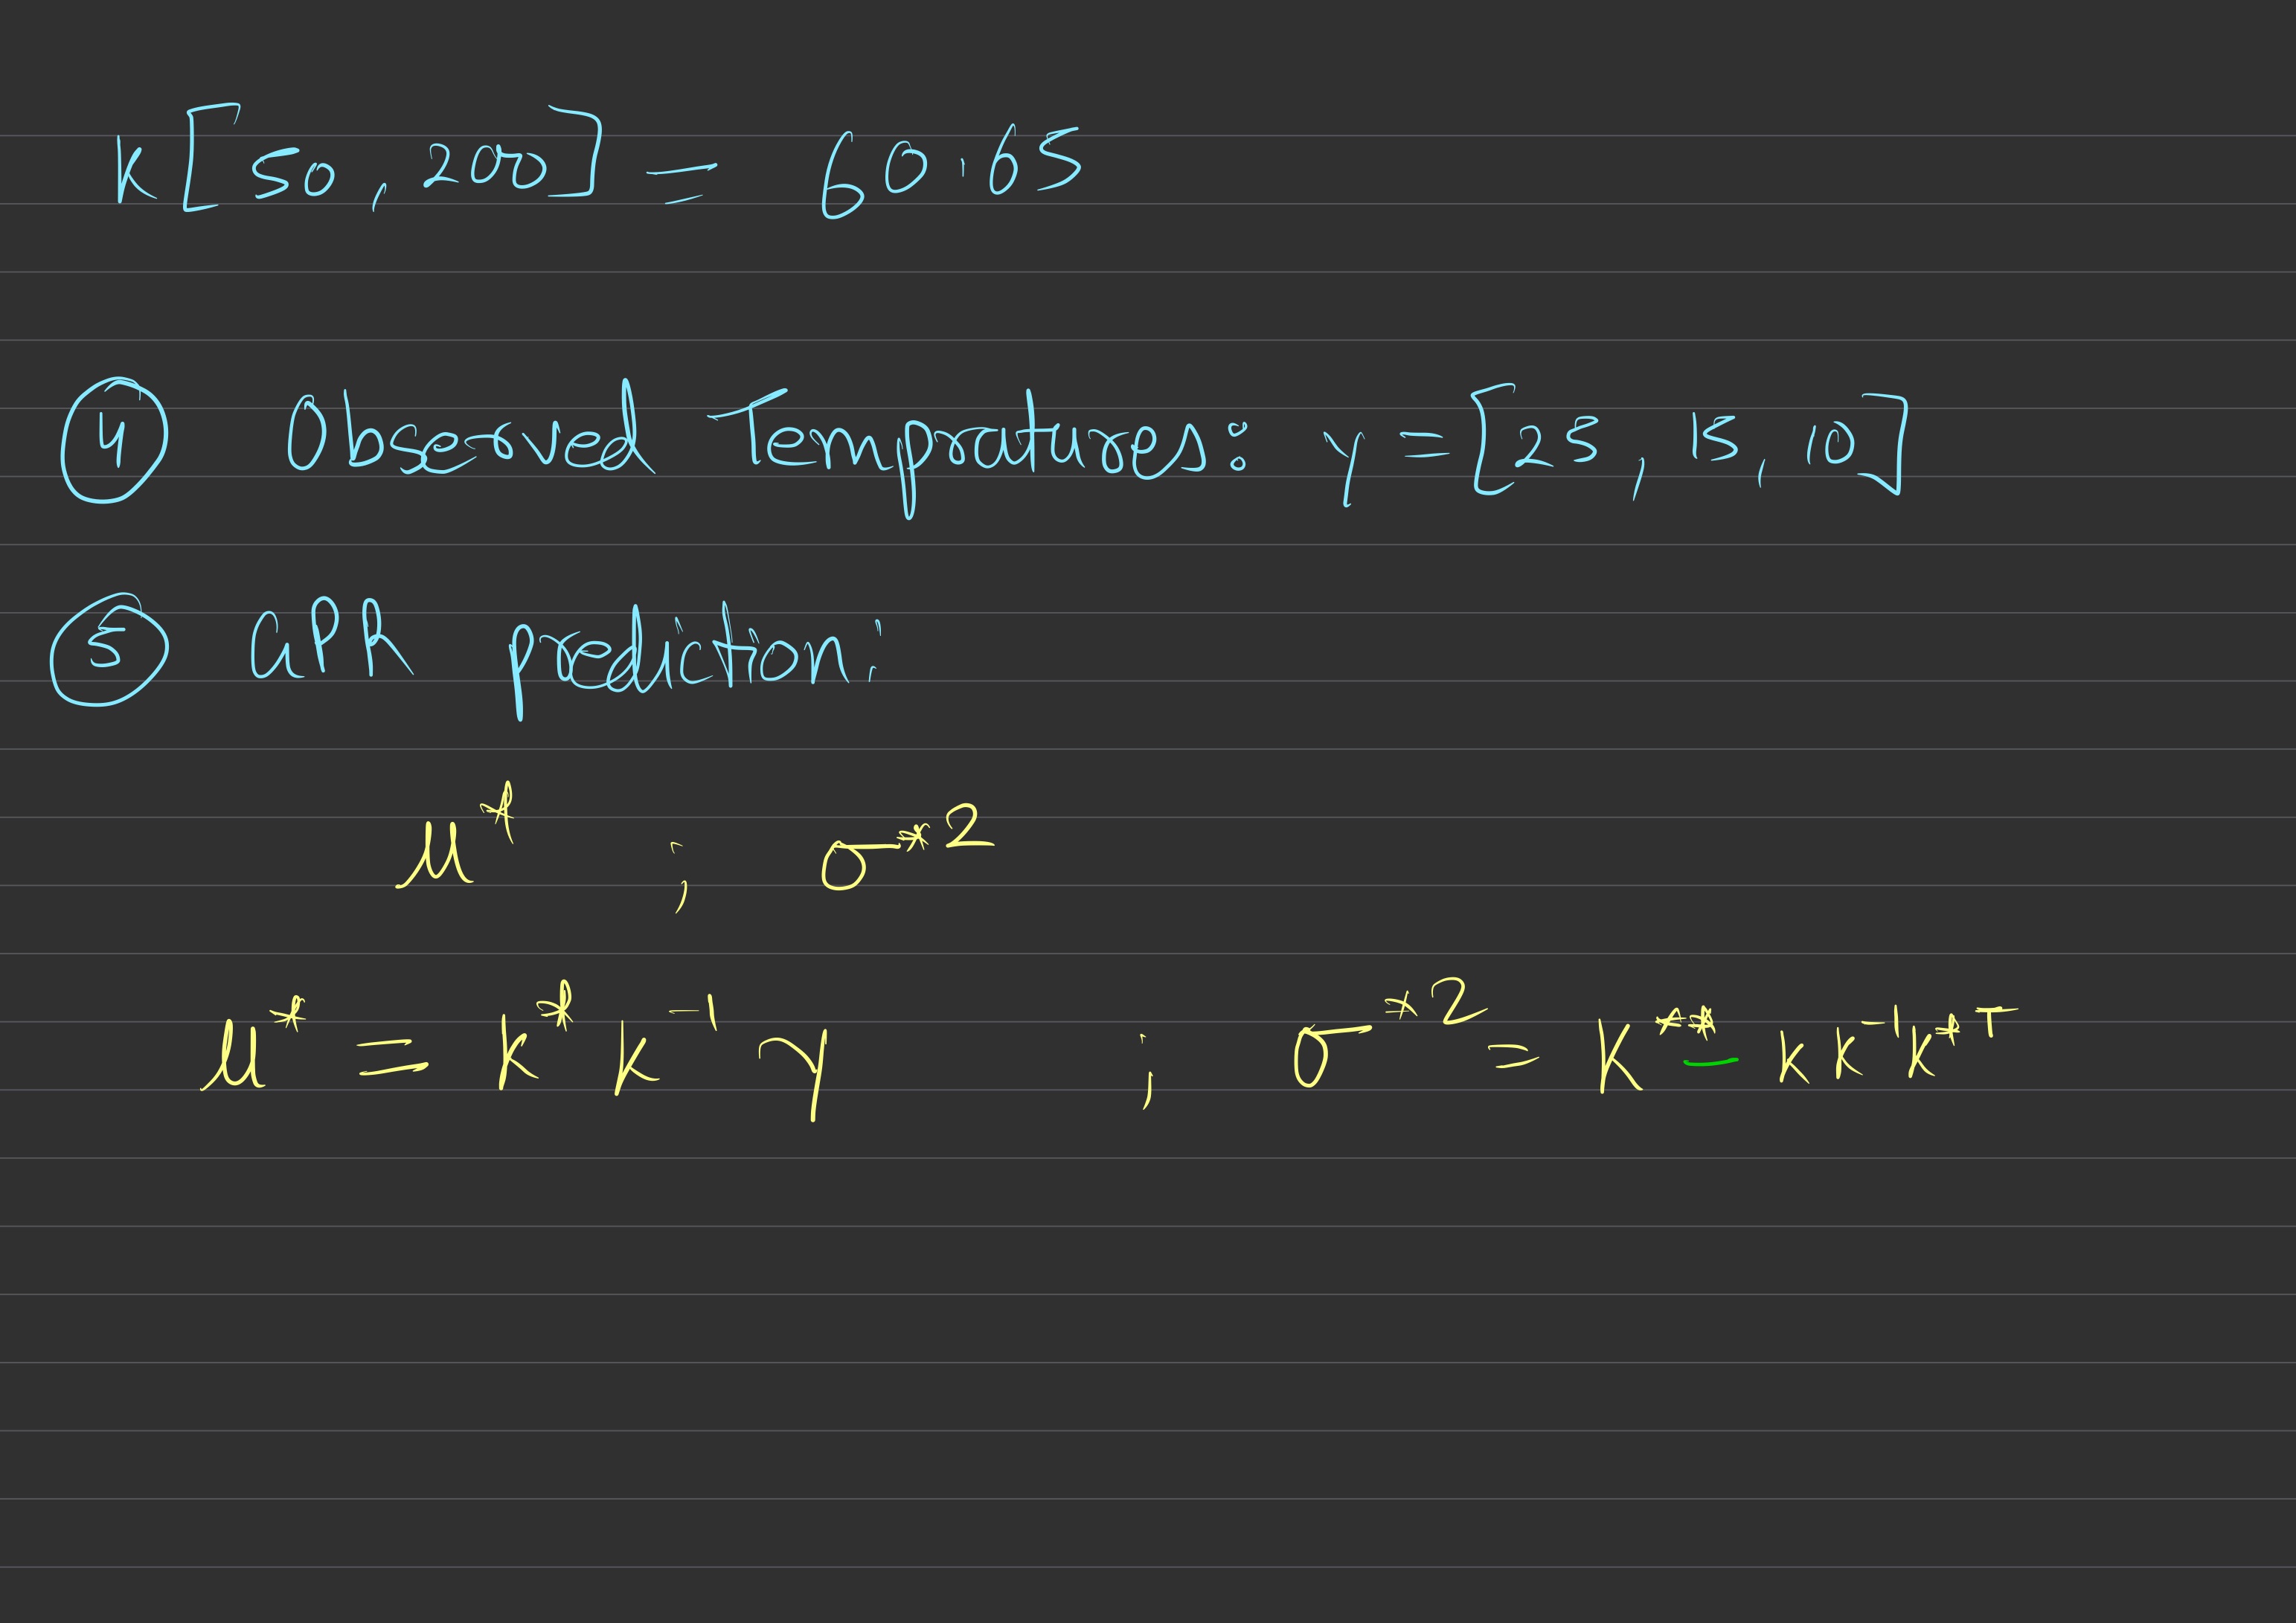 K[50, 200] = 60.65
④ Observed Tempratures: y = [25, 15, 10]
⑤ GPR prediction:
μ* ; σ*²
μ* = k* k⁻¹ y ; σ*² = k** - k k⁻¹ k*ᵀ